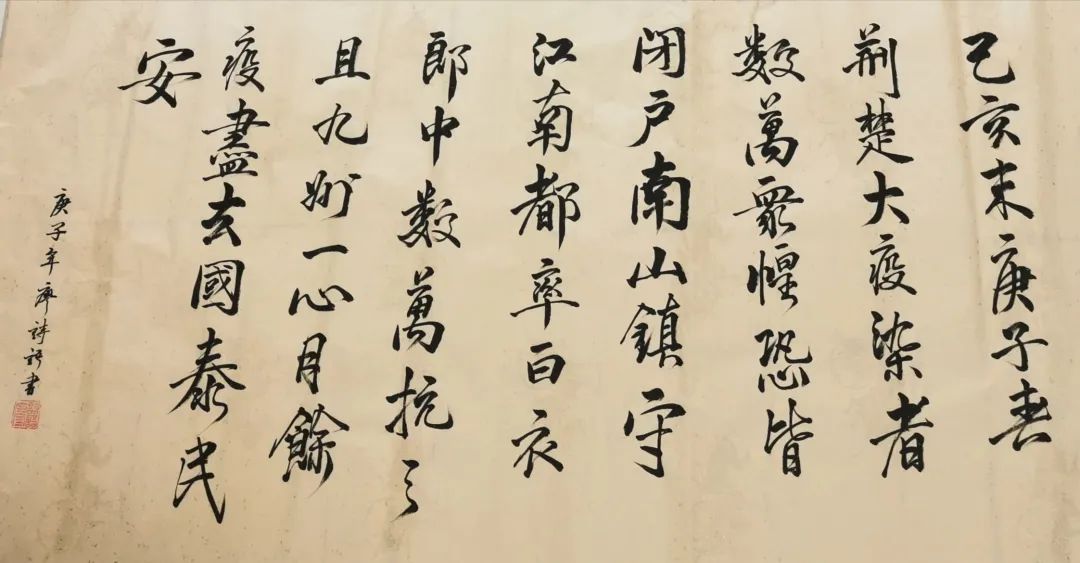 己亥末庚子春
荆楚大疫染者
数萬眾惶恐皆
闭户南山鎮守
江南都率白衣
郎中数萬抗之
且九州一心月餘
疫盡去國泰民
安
庚子年廖詩語書